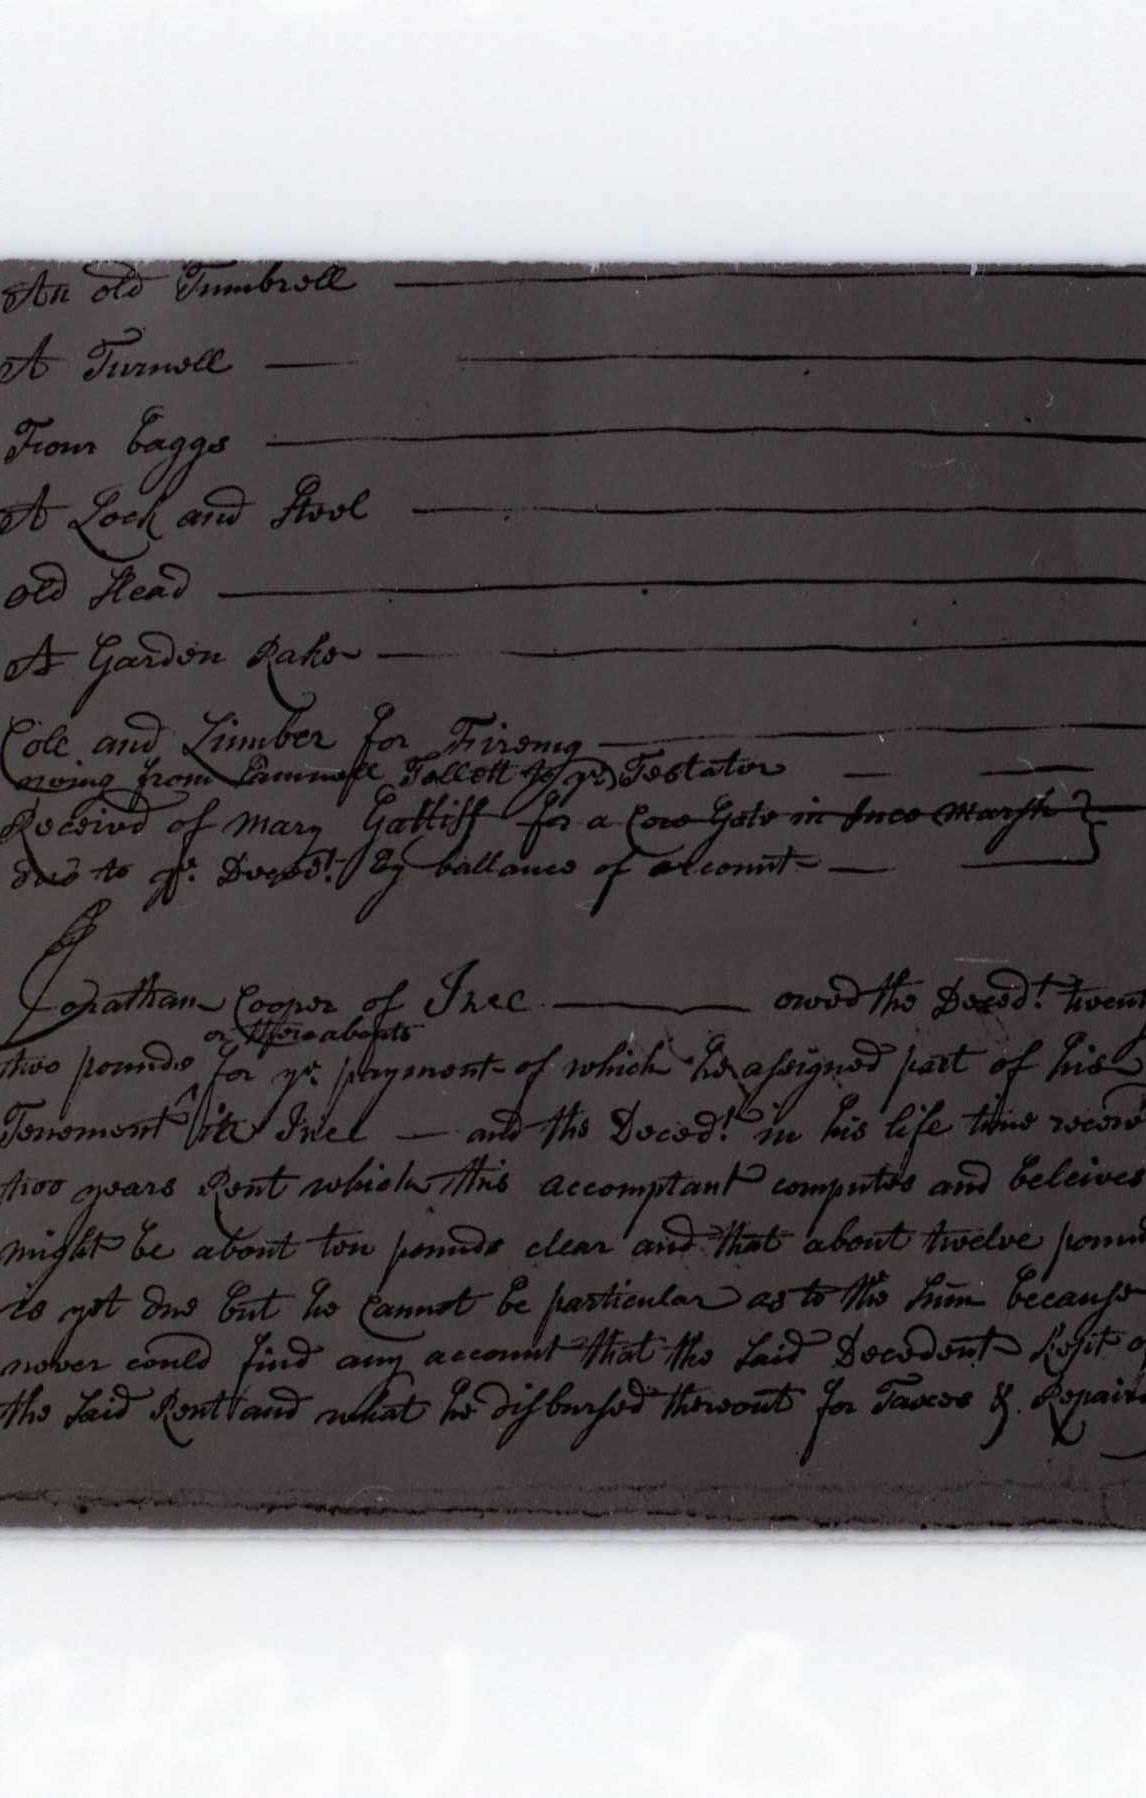 An old Tumbrell
A Turnell
Four baggs
A Lock and Stool
old Head
A Garden Rake
Cole and Timber for Fireing
owing from Tollett to ye Testator
Received of Mary Gatliff for a Cow Gate in Ince Marsh
due to ye Deced.t By ballance of account
Jonathan Cooper of Ince owed the Deced.t twent
or thereabouts
two pounds for ye payment of which he assigned part of his
Tenement in Ince — and the Deced.t in his life time receiv
two years Rent which this accomptant computes and beleives
might be about ten pounds clear and that about twelve poun
is yet due but he cannot be particular as to the sum because
never could find any account that the said Decedent kept o
the said Rent and what he disbursed thereout for Taxes & Repairs